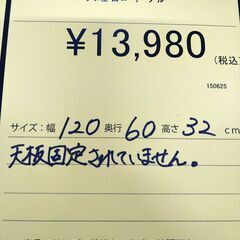 ¥13,980
(税込)
150625
サイズ:幅 120 奥行 60 高さ 32 cm
天板固定されていません。